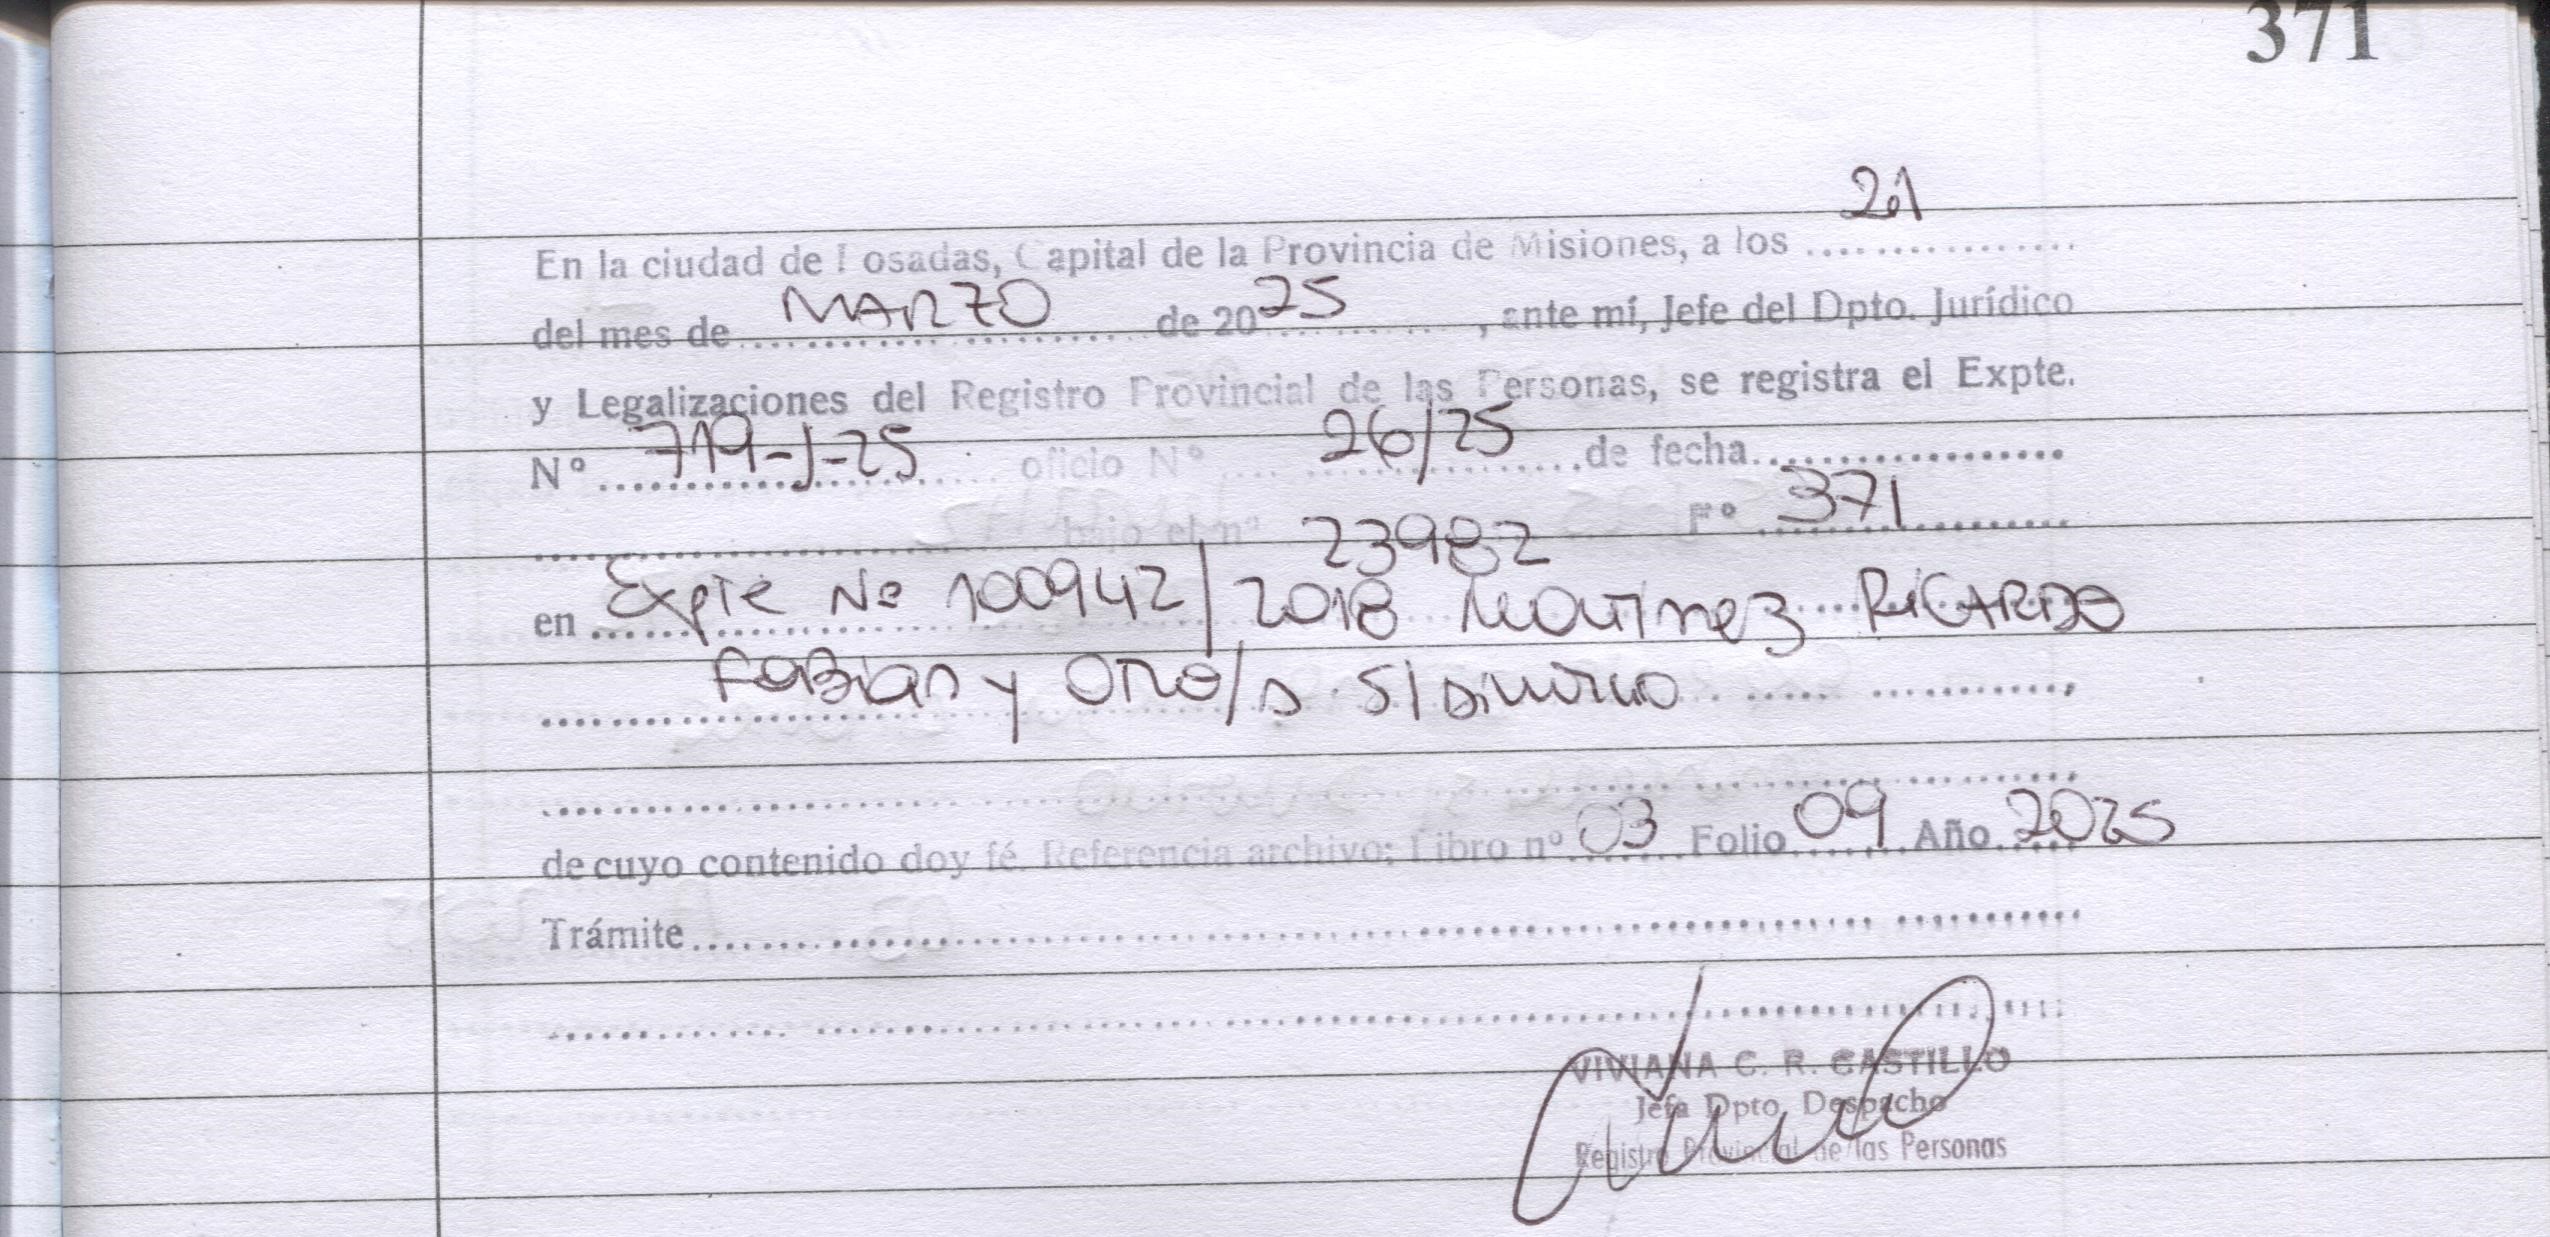 371
21
En la ciudad de Posadas, Capital de la Provincia de Misiones, a los ................
del mes de MARZO de 2025, ante mí, Jefe del Dpto. Jurídico
y Legalizaciones del Registro Provincial de las Personas, se registra el Expte.
Nº 719-J-25 oficio Nº 26/25 de fecha
bajo el nº 23982 Fº 371
en Expte Nº 100942/2018 Martinez RICARDO
Fabian y Otro/a S/
de cuyo contenido doy fé. Referencia archivo: Libro nº 03 Folio 09 Año 2025
Trámite
VIVIANA C. R. CASTILLO
Jefa Dpto. Despacho
Registro Provincial de las Personas